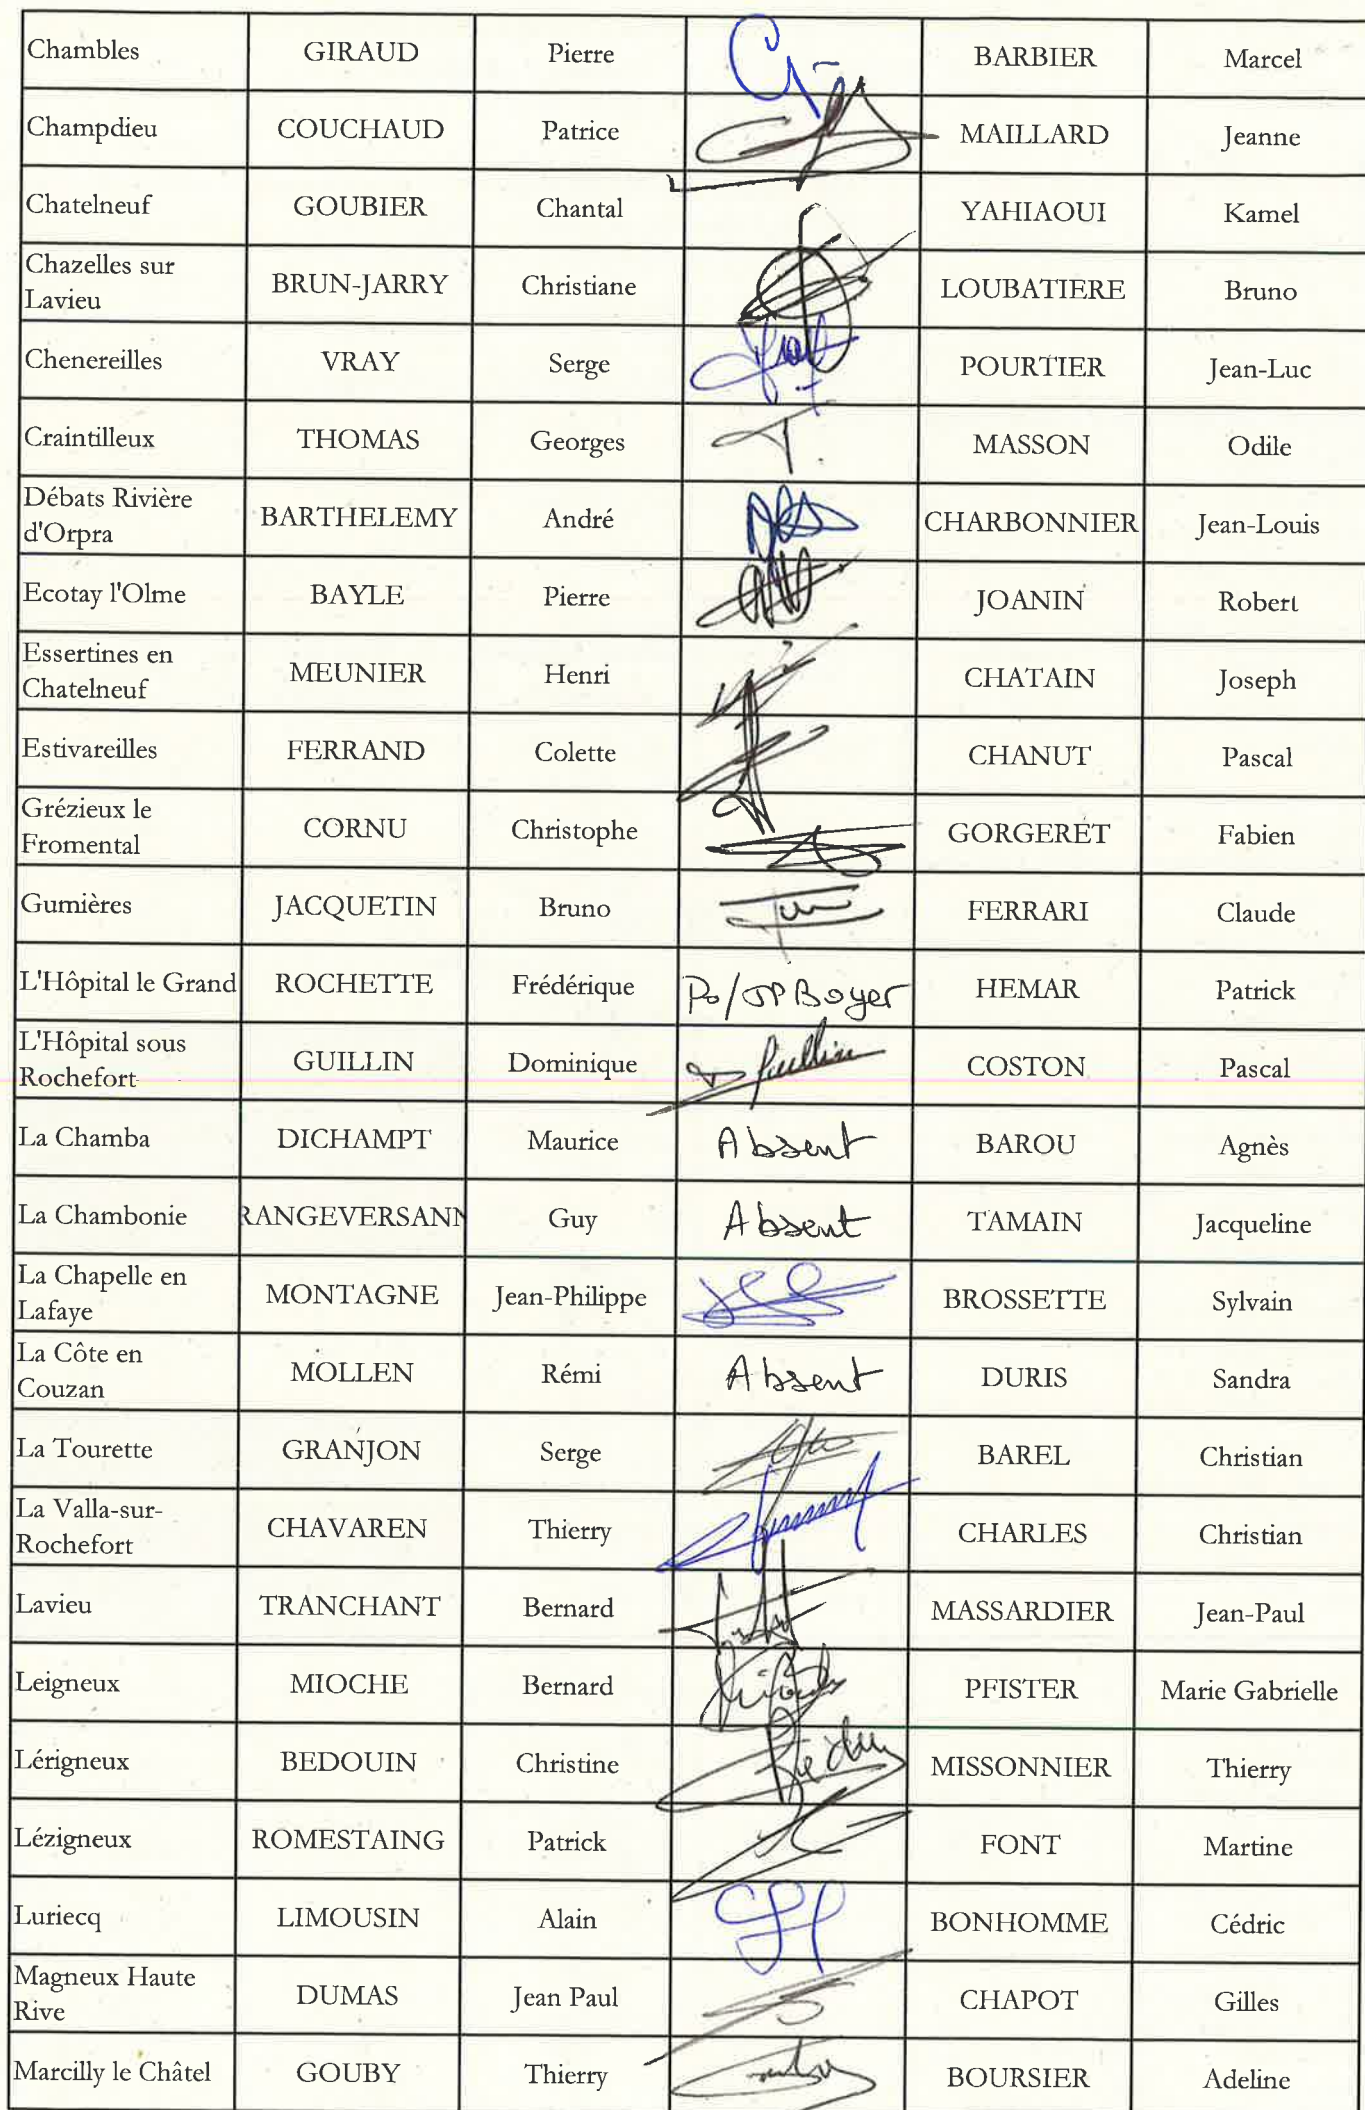 Chambles GIRAUD Pierre BARBIER Marcel
Champdieu COUCHAUD Patrice MAILLARD Jeanne
Chatelneuf GOUBIER Chantal YAHIAOUI Kamel
Chazelles sur
Lavieu BRUN-JARRY Christiane LOUBATIERE Bruno
Chenereilles VRAY Serge POURTIER Jean-Luc
Craintilleux THOMAS Georges T. MASSON Odile
Débats Rivière
d'Orpra BARTHELEMY André CHARBONNIER Jean-Louis
Ecotay l'Olme BAYLE Pierre JOANIN Robert
Essertines en
Chatelneuf MEUNIER Henri CHATAIN Joseph
Estivareilles FERRAND Colette CHANUT Pascal
Grézieux le
Fromental CORNU Christophe GORGERET Fabien
Gumières JACQUETIN Bruno FERRARI Claude
L'Hôpital le Grand ROCHETTE Frédérique Po/JP Boyer HEMAR Patrick
L'Hôpital sous
Rochefort GUILLIN Dominique D Guillin COSTON Pascal
La Chamba DICHAMPT Maurice Absent BAROU Agnès
La Chambonie RANGEVERSANN Guy Absent TAMAIN Jacqueline
La Chapelle en
Lafaye MONTAGNE Jean-Philippe BROSSETTE Sylvain
La Côte en
Couzan MOLLEN Rémi Absent DURIS Sandra
La Tourette GRANJON Serge BAREL Christian
La Valla-sur-
Rochefort CHAVAREN Thierry CHARLES Christian
Lavieu TRANCHANT Bernard MASSARDIER Jean-Paul
Leigneux MIOCHE Bernard PFISTER Marie Gabrielle
Lérigneux BEDOUIN Christine MISSONNIER Thierry
Lézigneux ROMESTAING Patrick FONT Martine
Luriecq LIMOUSIN Alain BONHOMME Cédric
Magneux Haute
Rive DUMAS Jean Paul CHAPOT Gilles
Marcilly le Châtel GOUBY Thierry BOURSIER Adeline